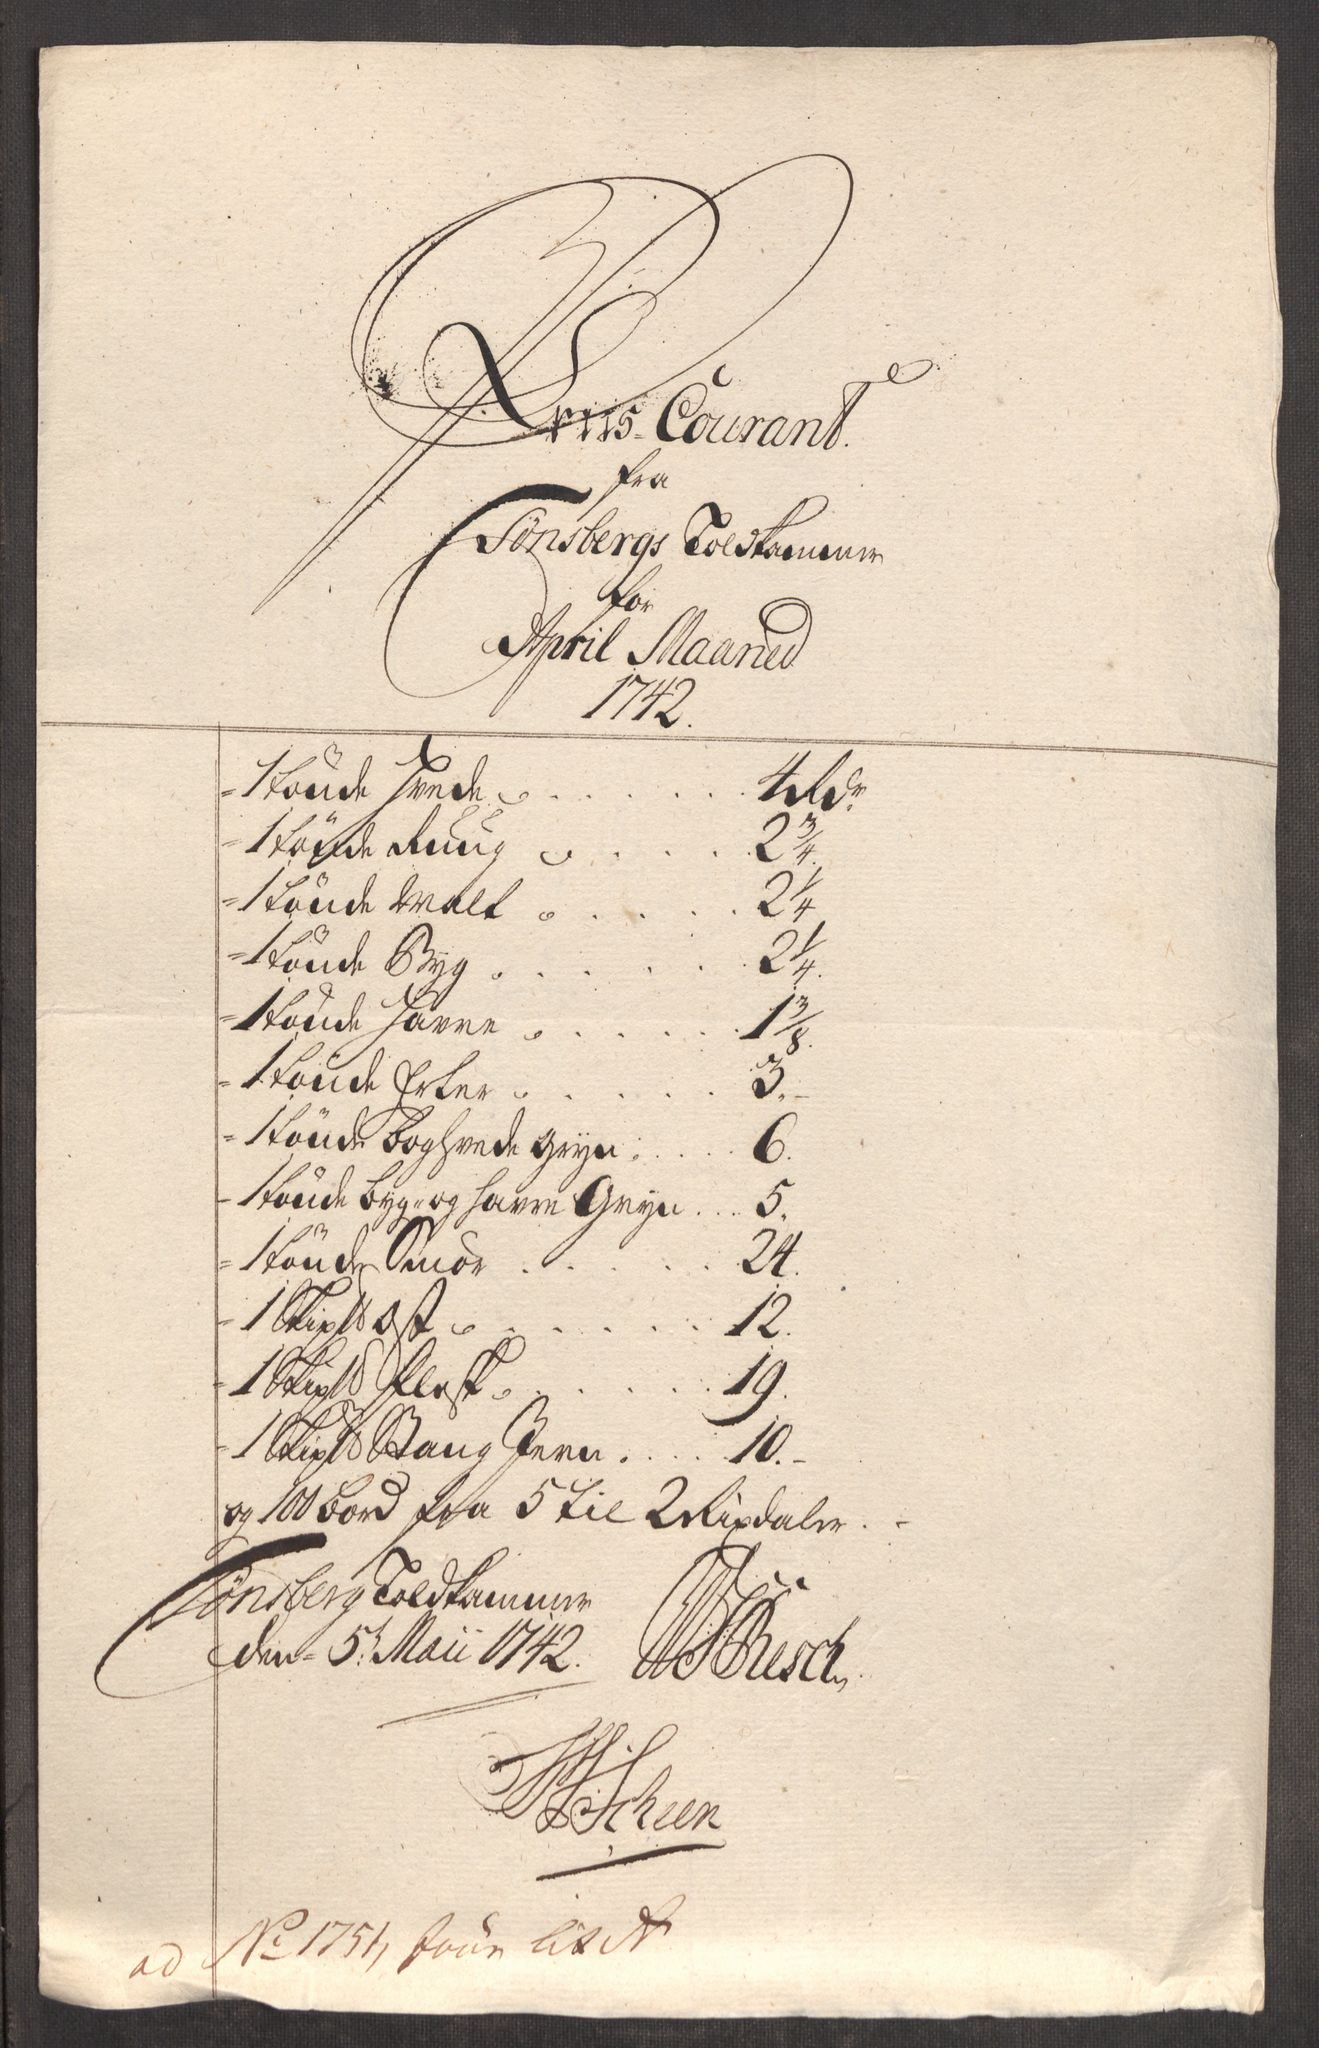 Priis-Courant
fra
Tönsbergs Toldkammer
for
April Maaned
1742.
- 1 tönde Hvede . . . . . . 4 Rdr
- 1 tönde Ruug . . . . 2 3/4.
- 1 tönde Malt . . . . . 2 1/4
- 1 tönde Byg . . . . . . 2 1/4.
- 1 tönde Havre . . . . . . 1 3/8.
- 1 tönde Erter . . . . . . 3. -
- 1 tönde boghvede Gryn . . . . . 6.
- 1 tönde byg- og havre Gryn . . . 5.
- 1 tönde Smör . . . . . 24.
- 1 Skip℔ Ost . . . . . . 12.
- 1 Skip℔ flesk . . . . . . 19.
- 1 Skip℔ Stang Jern . . . . 10. -
og 100 bord fra 5 til 2 Rixdaler. -
Tönsberg Toldkammer
den 5t Maii 1742.
Resch
Scheen
ad No 1751,